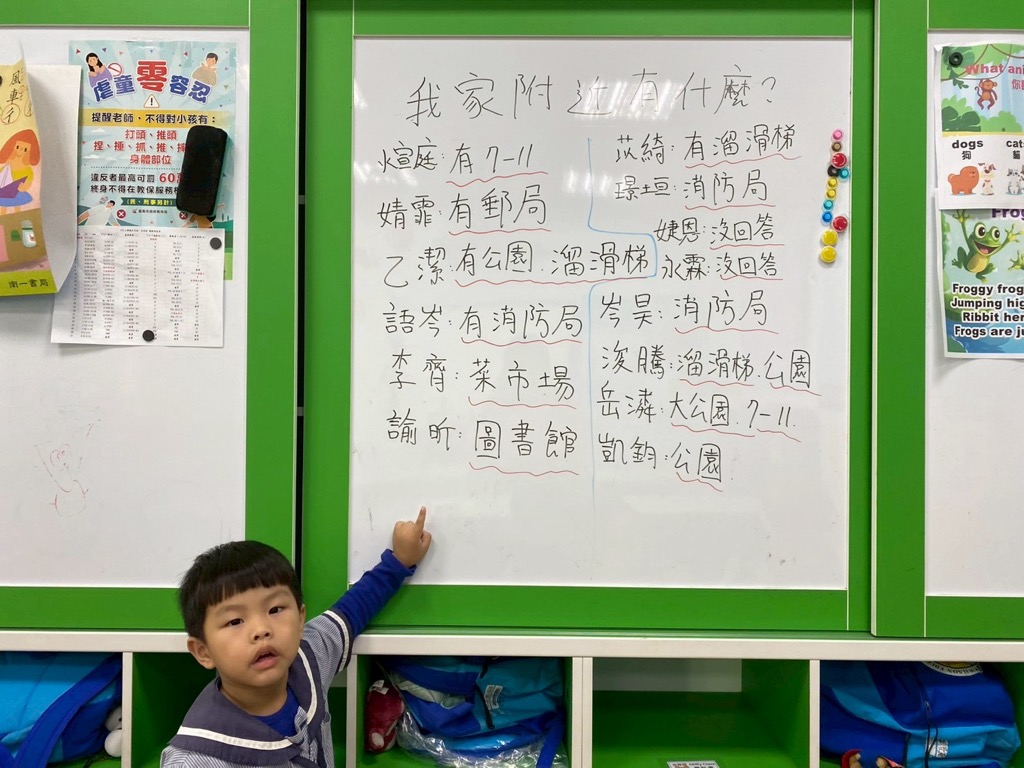 我家附近有什麼?
煊庭:有7-11
婧霏:有郵局
乙潔:有公園、溜滑梯
語岑:有消防局
李齊:菜市場
諭昕:圖書館
苡綺:有溜滑梯
璟垣:消防局
婕恩:沒回答
永霖:沒回答
岑昊:消防局
浚騰:溜滑梯、公園
岳潾:大公園、7-11
凱鈞:公園
風車
南一書局
虐童零容忍
提醒老師,不得對小孩有:
打頭、推頭
捏、捶、抓、推、
身體部位
違反者最高可罰 60
終身不得在教保服務
What ani
dogs
狗
cats
貓
Froggy frog
Jumping hig
Ribbit her
Frogs are ju